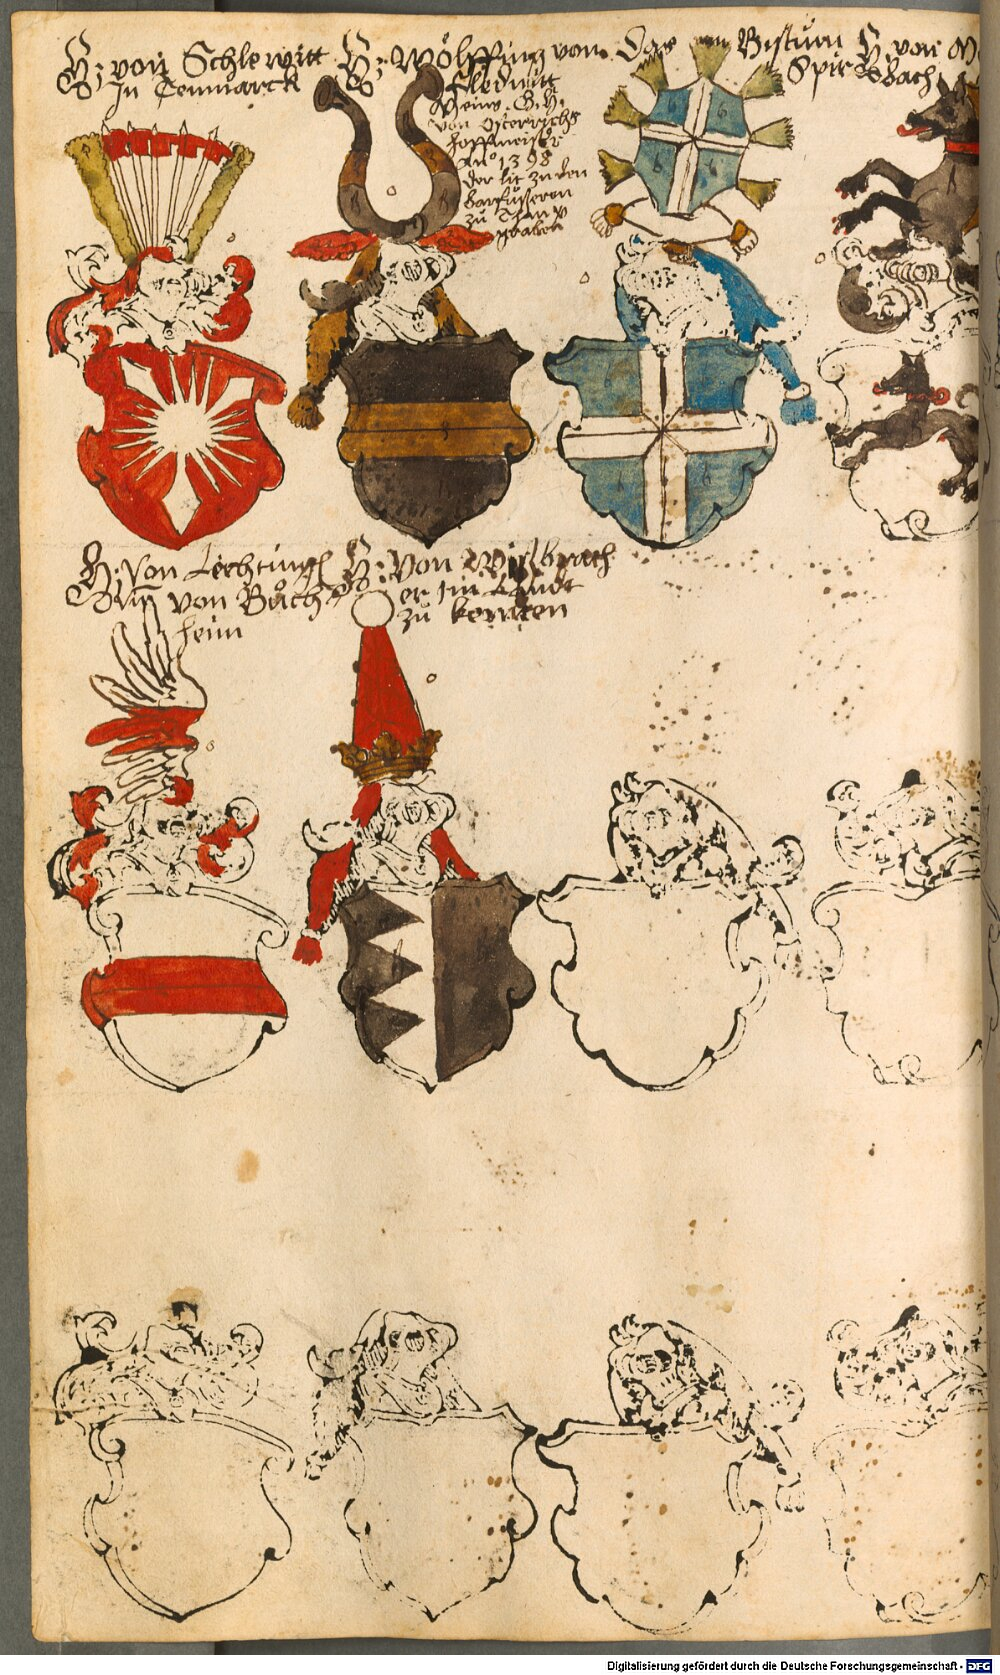 H: von Schlewitt
In Tenmarck
H: Wölffing von
Flednitz
meins G. H.
von Osterrichs
hoffmeister
Ano 1398
der lit zu den
barfüsseren
zü
graben
Das Bistum
Spir
H. von
bach
H: von Lechtingen
von Büch
heim
H: von
er im Landt
zü kernten
Digitalisierung gefördert durch die Deutsche Forschungsgemeinschaft - DFG